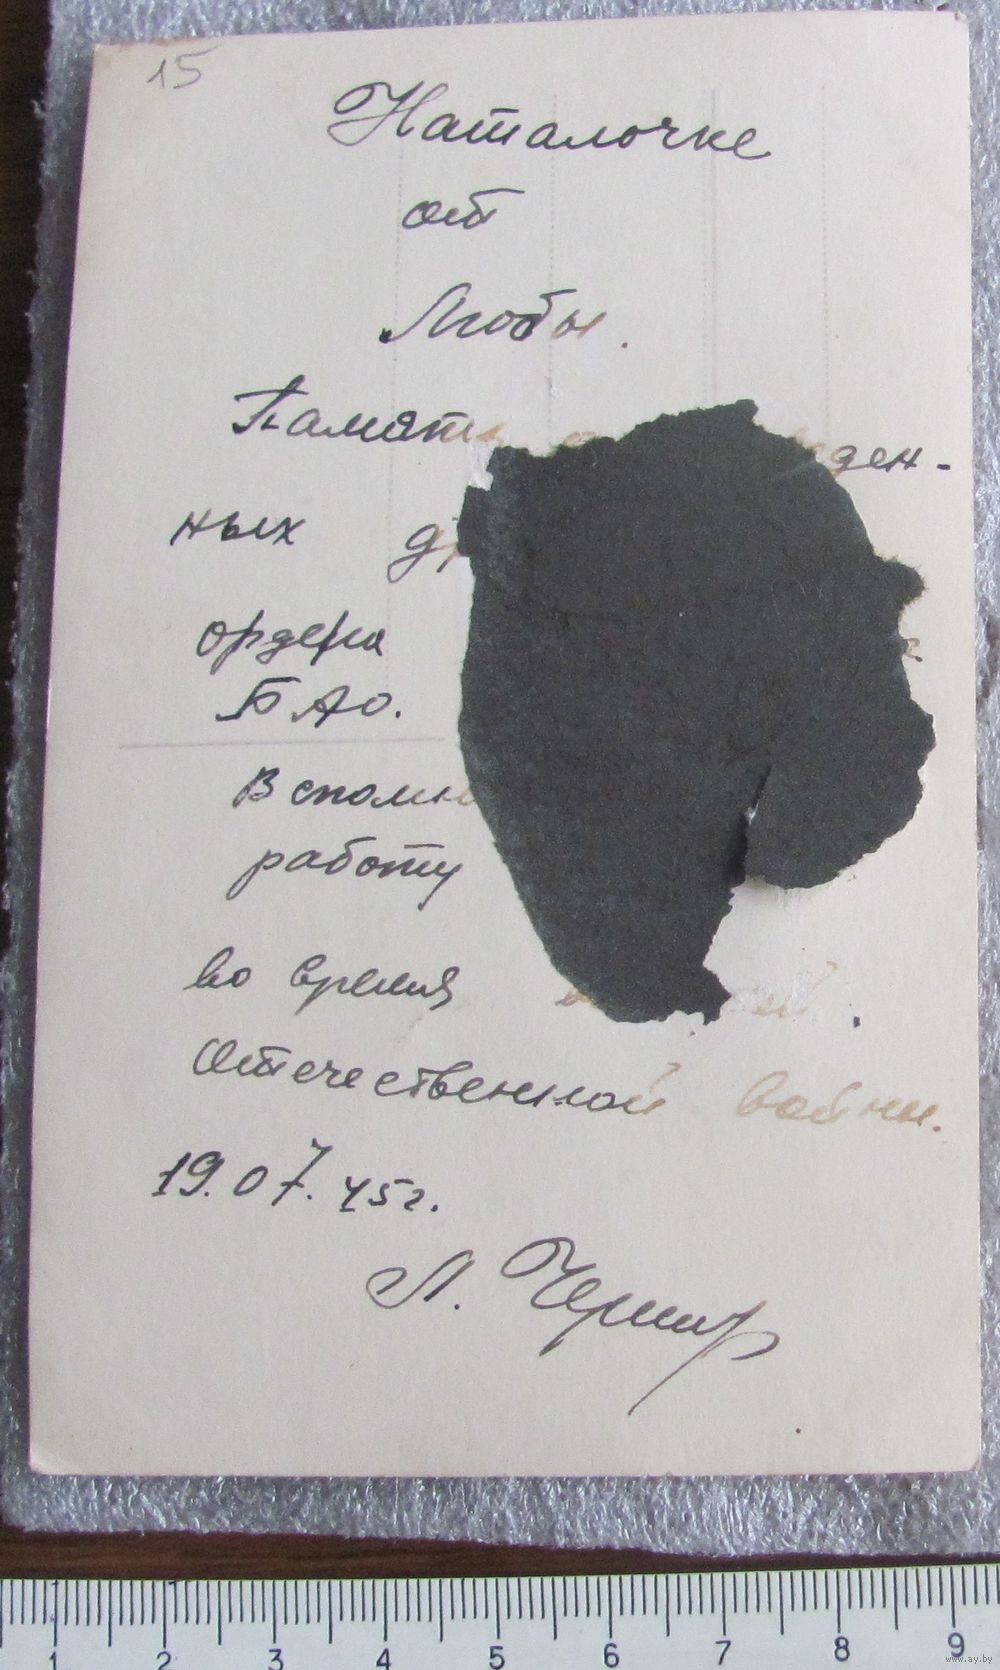 15
Наталочке
от
Любы.
Память ден-
ных
ордена
БАО.
Вспомн
работу
во время
Отечественной войны.
19.07.45г.
Л.
1 2 3 4 5 6 7 8 9
www.ay.by